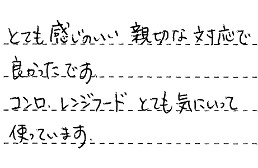 とても感じのいい 親切な対応で
良かったです
コンロ.レンジフード とても気にいって
使っています.